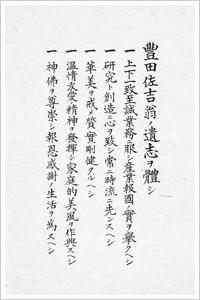 豐田佐吉翁ノ遺志ヲ體シ
一 上下一致至誠業務ニ服シ產業報國ノ實ヲ擧クヘシ
一 研究ト創造ニ心ヲ致シ常ニ時流ニ先ンスヘシ
一 華美ヲ戒メ質實剛健タルヘシ
一 溫情友愛ノ精神ヲ發揮シ家庭的美風ヲ作興スヘシ
一 神佛ヲ尊崇シ報恩感謝ノ生活ヲ爲スヘシ